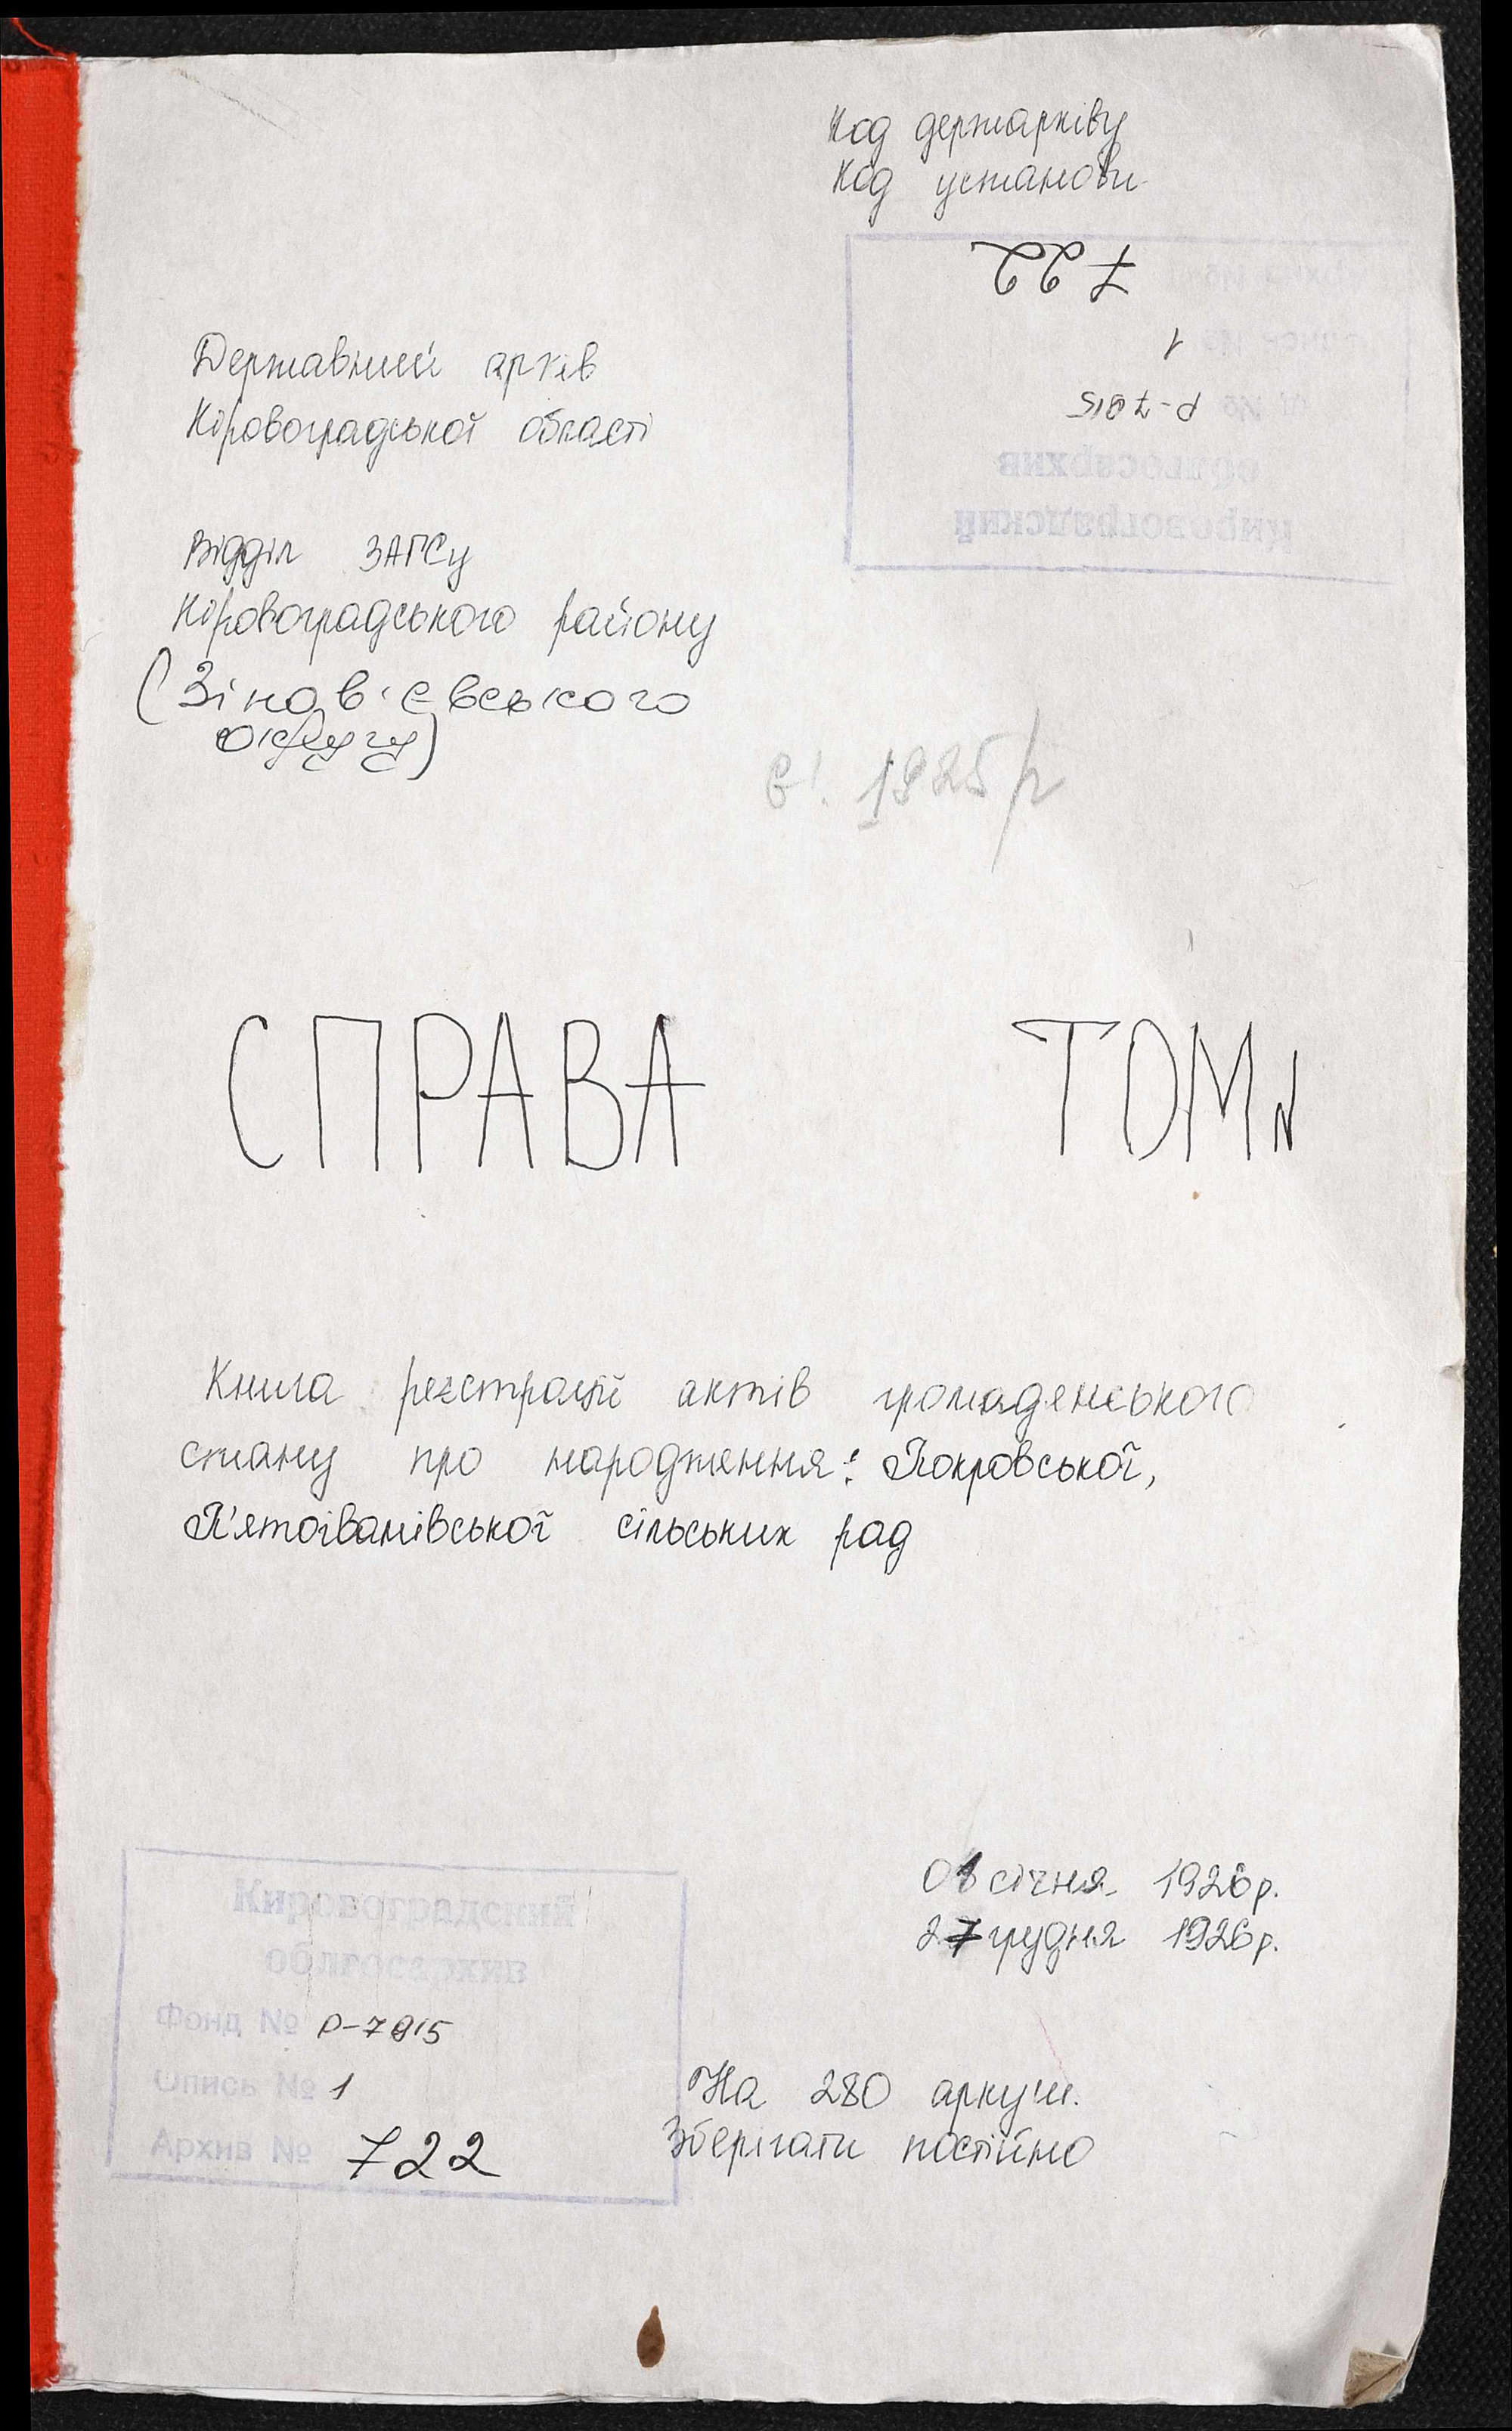 Код держархіву
Код установи
722
1
Р-7815
облгосархив
Кировоградский
Державний архів
Кіровоградської області
Відділ ЗАГСу
Кіровоградського району
(Зінов'євського
округу)
є! 1925 р
СПРАВА ТОМ№
Книга реєстрації актів громадянського
стану про народження: Покровської,
П'ятоіванівської сільських рад
01 січня 1926р.
27 грудня 1926р.
Кировоградский
облгосархив
Фонд № Р-7815
Опись № 1
Архив № 722
На 280 аркуш.
Зберігати постійно